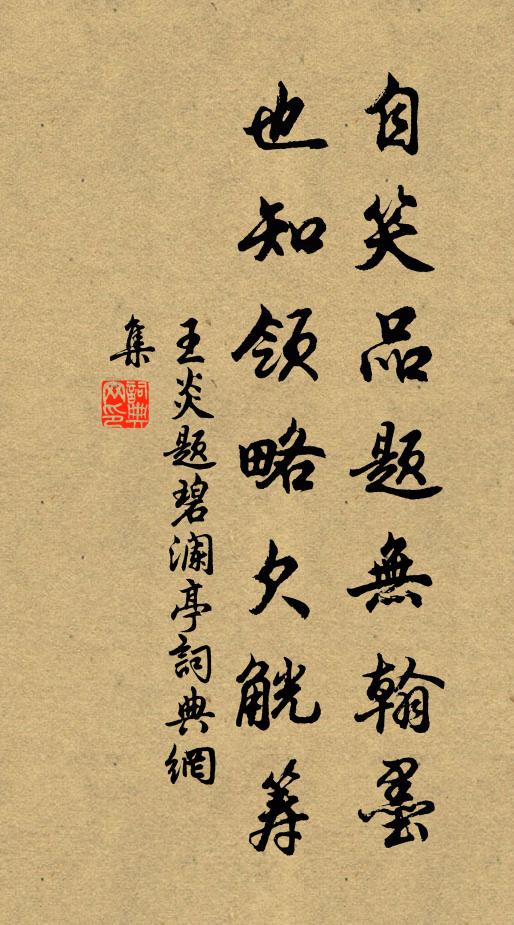 自笑品題無翰墨
也知領略欠觥籌
王炎題碧瀾亭詞典網
集
詞典網印